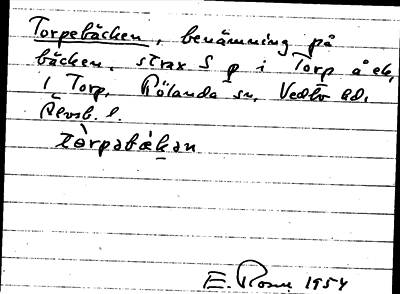 Torpebäcken, benämning på
bäcken, strax S p i Torp å ek,
1 Torp, Rölanda sn, Vedbo hd,
Älvsb. l.
tòrpəbækən
E. Rosen 1954